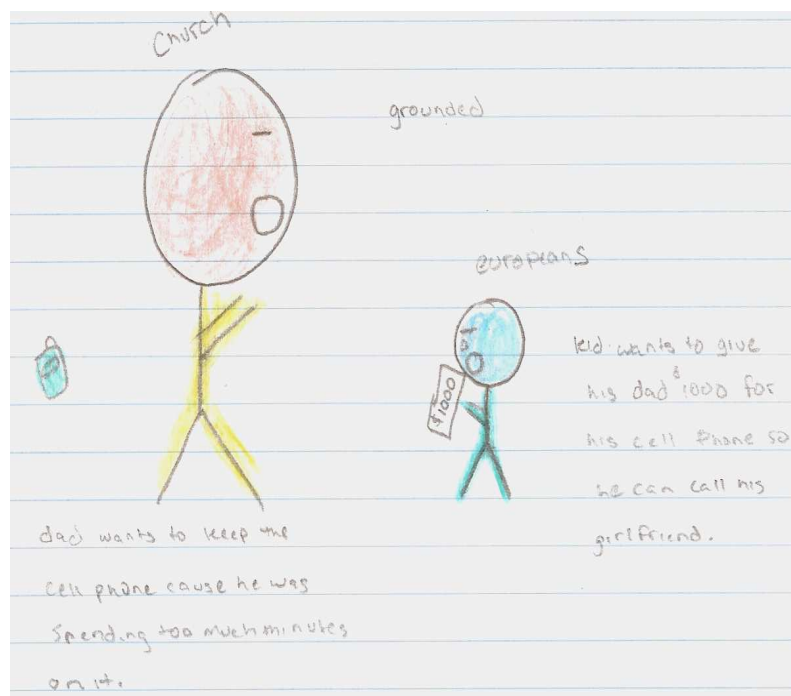 Church
grounded
europeans
$1000
kid wants to give
his dad $1000 for
his cell Phone so
he can call his
girlfriend.
dad wants to keep the
cell phone cause he was
Spending too much minutes
on it.